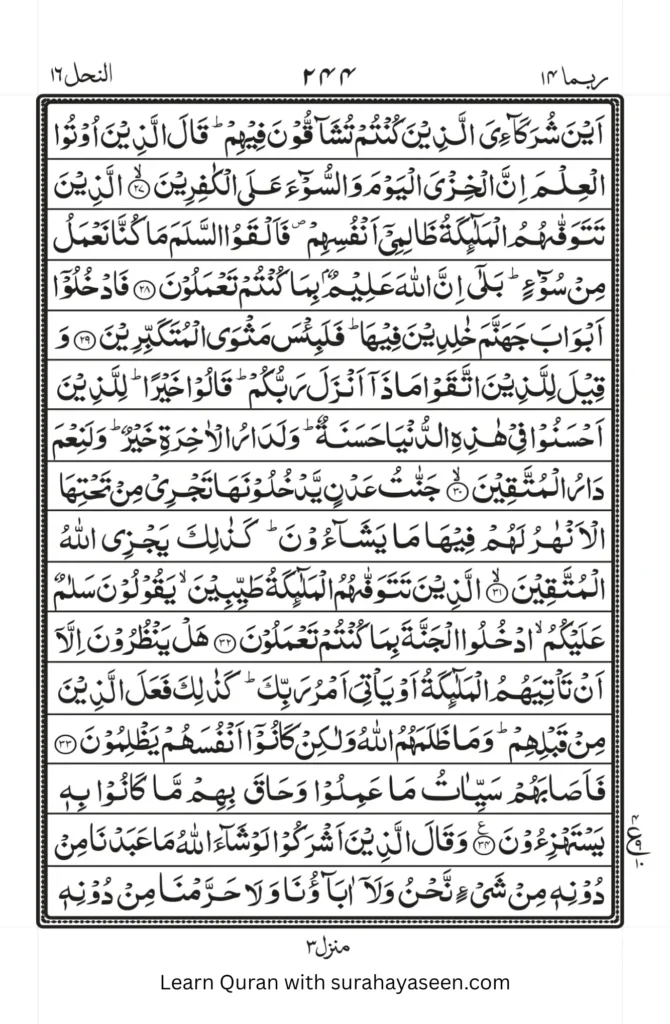 النحل ١٦ ٢٤٤ ربما ١٤
اَيْنَ شُرَكَآءِیَ الَّذِيْنَ كُنْتُمْ تُشَآقُّوْنَ فِيْهِمْ ؕ قَالَ الَّذِيْنَ اُوْتُوا
الْعِلْمَ اِنَّ الْخِزْیَ الْيَوْمَ وَالسُّوْٓءَ عَلَی الْكٰفِرِيْنَ ۙ﴿٢٧﴾ الَّذِيْنَ
تَتَوَفّٰىهُمُ الْمَلٰٓئِكَةُ ظَالِمِیْۤ اَنْفُسِهِمْ ۪ فَاَلْقَوُا السَّلَمَ مَا كُنَّا نَعْمَلُ
مِنْ سُوْٓءٍ ؕ بَلٰۤی اِنَّ اللّٰهَ عَلِيْمٌۢ بِمَا كُنْتُمْ تَعْمَلُوْنَ ﴿٢٨﴾ فَادْخُلُوْۤا
اَبْوَابَ جَهَنَّمَ خٰلِدِيْنَ فِيْهَا ؕ فَلَبِئْسَ مَثْوَی الْمُتَكَبِّرِيْنَ ﴿٢٩﴾ وَ
قِيْلَ لِلَّذِيْنَ اتَّقَوْا مَاذَاۤ اَنْزَلَ رَبُّكُمْ ؕ قَالُوْا خَيْرًا ؕ لِلَّذِيْنَ
اَحْسَنُوْا فِیْ هٰذِهِ الدُّنْيَا حَسَنَةٌ ؕ وَلَدَارُ الْاٰخِرَةِ خَيْرٌ ؕ وَلَنِعْمَ
دَارُ الْمُتَّقِيْنَ ۙ﴿٣٠﴾ جَنّٰتُ عَدْنٍ يَّدْخُلُوْنَهَا تَجْرِیْ مِنْ تَحْتِهَا
الْاَنْهٰرُ لَهُمْ فِيْهَا مَا يَشَآءُوْنَ ؕ كَذٰلِكَ يَجْزِی اللّٰهُ
الْمُتَّقِيْنَ ۙ﴿٣١﴾ الَّذِيْنَ تَتَوَفّٰىهُمُ الْمَلٰٓئِكَةُ طَيِّبِيْنَ ۙ يَقُوْلُوْنَ سَلٰمٌ
عَلَيْكُمُ ۙ ادْخُلُوا الْجَنَّةَ بِمَا كُنْتُمْ تَعْمَلُوْنَ ﴿٣٢﴾ هَلْ يَنْظُرُوْنَ اِلَّاۤ
اَنْ تَاْتِيَهُمُ الْمَلٰٓئِكَةُ اَوْ يَاْتِیَ اَمْرُ رَبِّكَ ؕ كَذٰلِكَ فَعَلَ الَّذِيْنَ
مِنْ قَبْلِهِمْ ؕ وَمَا ظَلَمَهُمُ اللّٰهُ وَلٰكِنْ كَانُوْۤا اَنْفُسَهُمْ يَظْلِمُوْنَ ﴿٣٣﴾
فَاَصَابَهُمْ سَيِّاٰتُ مَا عَمِلُوْا وَحَاقَ بِهِمْ مَّا كَانُوْا بِهٖ
يَسْتَهْزِءُوْنَ ﴿٣٤﴾ وَقَالَ الَّذِيْنَ اَشْرَكُوْا لَوْ شَآءَ اللّٰهُ مَا عَبَدْنَا مِنْ
دُوْنِهٖ مِنْ شَیْءٍ نَّحْنُ وَلَاۤ اٰبَآؤُنَا وَلَا حَرَّمْنَا مِنْ دُوْنِهٖ
٤
ع ٩
١٠
منزل ٣
Learn Quran with surahayaseen.com